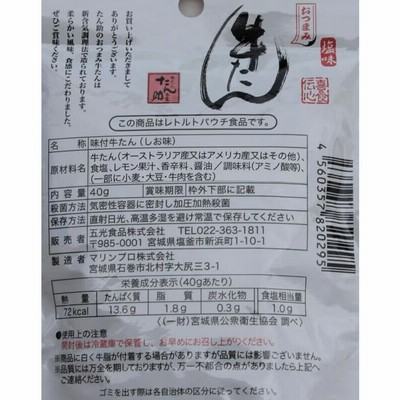 おつまみ
牛たん
塩味
喜食伝心
たん助
お買い上げいただきまして
ありがとうございます。
たん助のおつまみ牛たんは
新含気調理法で造られております。
柔らかい風味、食感にこだわりました。
ぜひご賞味ください。
この商品はレトルトパウチ食品です。
名称 味付牛たん(しお味)
原材料名 牛たん(オーストラリア産又はアメリカ産又はその他)、
食塩、レモン果汁、香辛料、醤油/調味料(アミノ酸等)、
(一部に小麦・大豆・牛肉を含む)
内容量 40g 賞味期限 枠外下部に記載
殺菌方法 気密性容器に密封し加圧加熱殺菌
保存方法 直射日光、高温多湿を避け常温で保存してください
販売者 五光食品株式会社 TEL022-363-1811
〒985-0001 宮城県塩釜市新浜町1-10-1
製造者 マリンプロ株式会社
宮城県石巻市北村字大尻三3-1
栄養成分表示(40gあたり)
熱量 たんぱく質 脂質 炭水化物 食塩相当量
72kcal 13.6g 1.8g 0.3g 1.0g
(一財)宮城県公衆衛生協会 調べ
●使用上の注意
開封後は冷蔵庫で保管し、お早めにお召し上がりください。
※商品に白く牛脂が付着する場合がありますが品質には影響ございません。
※品質には万全を期しておりますが、万一不都合の点がありましたら上記へ
ご連絡ください。
ゴミを出す際は各自治体の区分に従ってください。
4 560357 820295